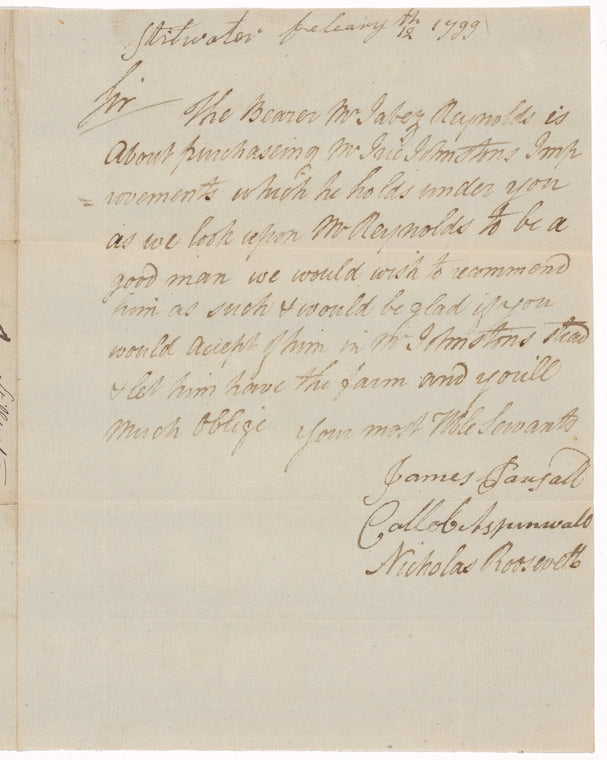 Stilwater febeary 12th 1799
Sir
The Bearer Mr Jabez Reynolds is
About purchaseing Mr Johnstons Imp
rovements which he holds under you
as we look upon Mr Reynolds to be a
good man we would wish to recommend
him as such & would be glad if you
would accept of him in Mr Johnstons stead
& let him have the farm and you'll
Much Oblige your most Hble Servants
James
Aspinwall
Nicholas Roosevelt